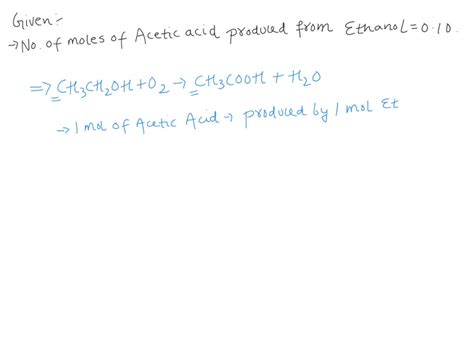 Given:-
→ No. of moles of Acetic acid produced from Ethanol = 0.10.
=> CH3CH2OH + O2 → CH3COOH + H2O
→ 1 mol of Acetic Acid → produced by 1 mol Et